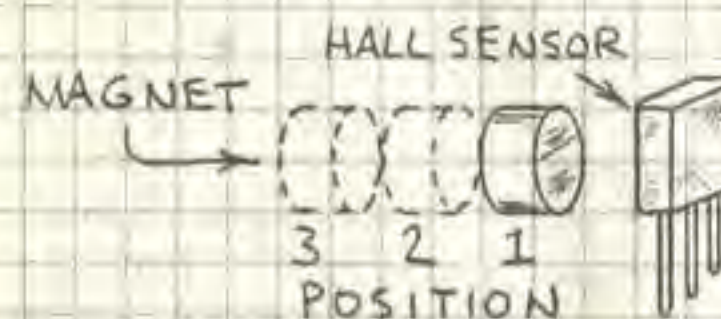 HALL SENSOR
MAGNET
3 2 1
POSITION